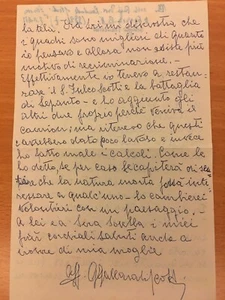 la tela. Ella mi ha dimostrato che
i quadri sono migliori di quanto
io pensavo e allora non esiste più
motivo di recriminazione. -
Effettivamente io tenevo a restau-
rare il S. Fulco Scotti e la battaglia
di Lepanto - e ho aggiunto gli
altri due proprio perché veniva il
camion; ma ritenevo che questi
avessero dato poco lavoro e invece
ho fatto male i calcoli. Come le
ho detto, se per caso le capiterà di
che la natura morta possa inte
ressare a qualcuno - lo cambierei
volentieri con un paesaggio. -
A lei e a Sua sorella i miei
più cordiali saluti anche a
nome di mia moglie